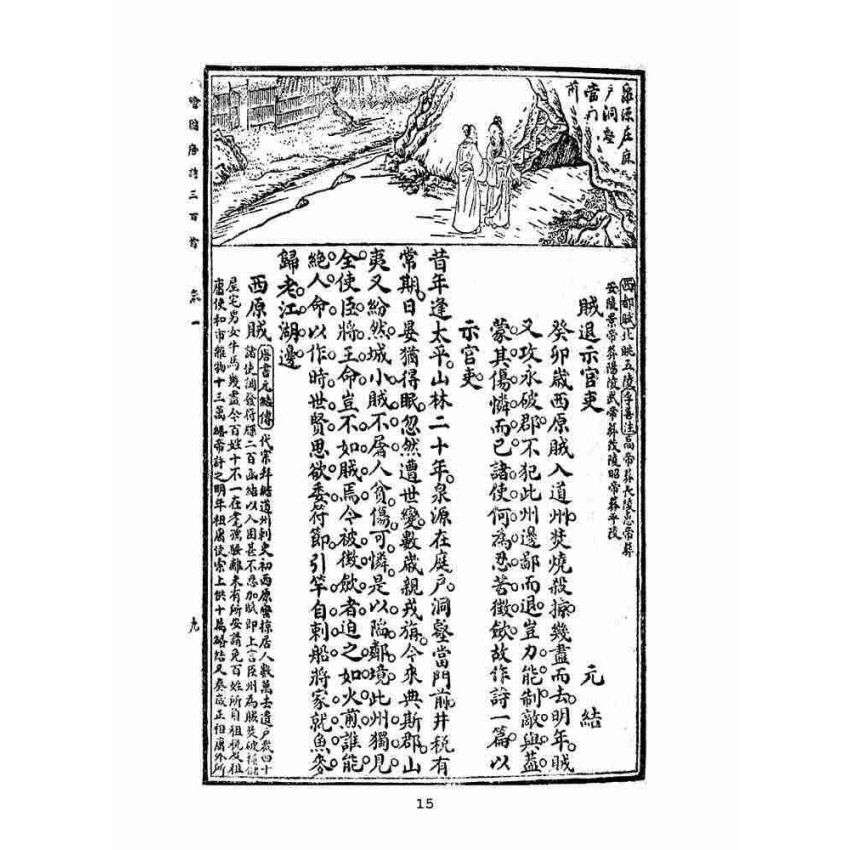 泉源在庭
戶洞壑
當門
前
西都賦北眺五陵李善注高帝葬長陵惠帝葬
安陵景帝葬陽陵武帝葬茂陵昭帝葬平陵
賊退示官吏　元結
癸卯歲。西原賊入道州。焚燒殺掠。幾盡而去。明年。賊
又攻永破郡。不犯此州邊鄙而退。豈力能制敵與。蓋
蒙其傷憐而已。諸使何為忍苦徵斂。故作詩一篇以
示官吏。
昔年逢太平。山林二十年。泉源在庭戶。洞壑當門前。井稅有
常期。日晏猶得眠。忽然遭世變。數歲親戎旃。今來典斯郡。山
夷又紛然。城小賊不屠。人貧傷可憐。是以陷鄰境。此州獨見
全。使臣將王命。豈不如賊焉。今被徵斂者。迫之如火煎。誰能
絕人命。以作時世賢。思欲委符節。引竿自刺船。將家就魚麥。
歸老江湖邊。
西原賊 唐書元結傳 代宗拜結道州刺史初西原蠻掠居人數萬去遺戶裁四十
諸使調發符牒二百函結以人困甚不忍加賦即上言臣州為賊焚破糧儲
屋宅男女牛馬幾盡今百姓十不一在耄孺騷離未有所安請免百姓所負租稅及租
庸使和市雜物十三萬緡帝許之明年租庸使索上供十萬緡結又奏歲正租庸外所
繪圖唐詩三百首　卷一　九
15